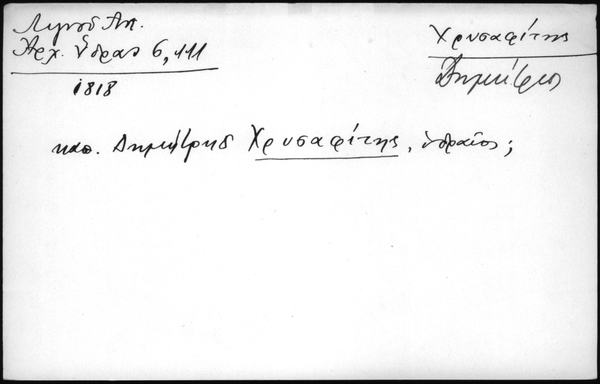 Λιγνοῦ Ἀπ.
Ἀρχ. Ὕδρας 6, 111
1818
Χρυσαφίτης
Δημήτριος
καπ. Δημήτρης Χρυσαφίτης, ὑδραῖος;